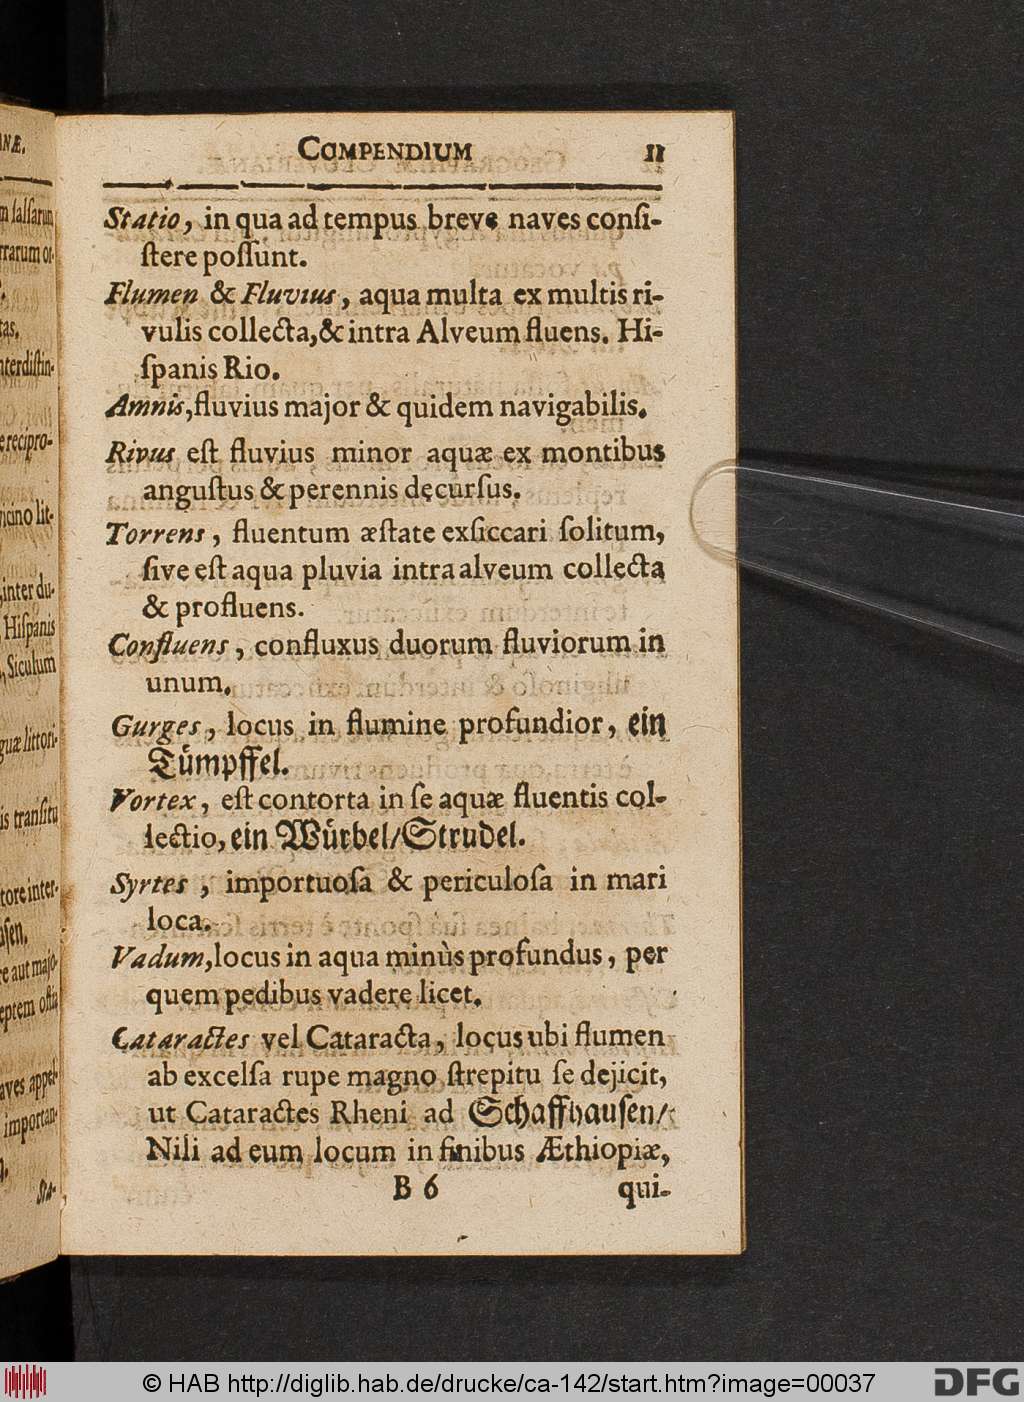 COMPENDIUM 11
Statio, in qua ad tempus breve naves consi-
stere possunt.
Flumen & Fluvius, aqua multa ex multis ri-
vulis collecta, & intra Alveum fluens. Hi-
spanis Rio.
Amnis, fluvius major & quidem navigabilis.
Rivus est fluvius minor aquæ ex montibus
angustus & perennis decursus.
Torrens, fluentum æstate exsiccari solitum,
sive est aqua pluvia intra alveum collecta
& profluens.
Confluens, confluxus duorum fluviorum in
unum.
Gurges, locus in flumine profundior, ein
Tümpffel.
Vortex, est contorta in se aquæ fluentis col-
lectio, ein Würbel/Strudel.
Syrtes, importuosa & periculosa in mari
loca.
Vadum, locus in aqua minùs profundus, per
quem pedibus vadere licet.
Cataractes vel Cataracta, locus ubi flumen
ab excelsa rupe magno strepitu se dejicit,
ut Cataractes Rheni ad Schaffhausen/
Nili ad eum locum in finibus Æthiopiæ,
B 6 qui-
© HAB http://diglib.hab.de/drucke/ca-142/start.htm?image=00037
DFG